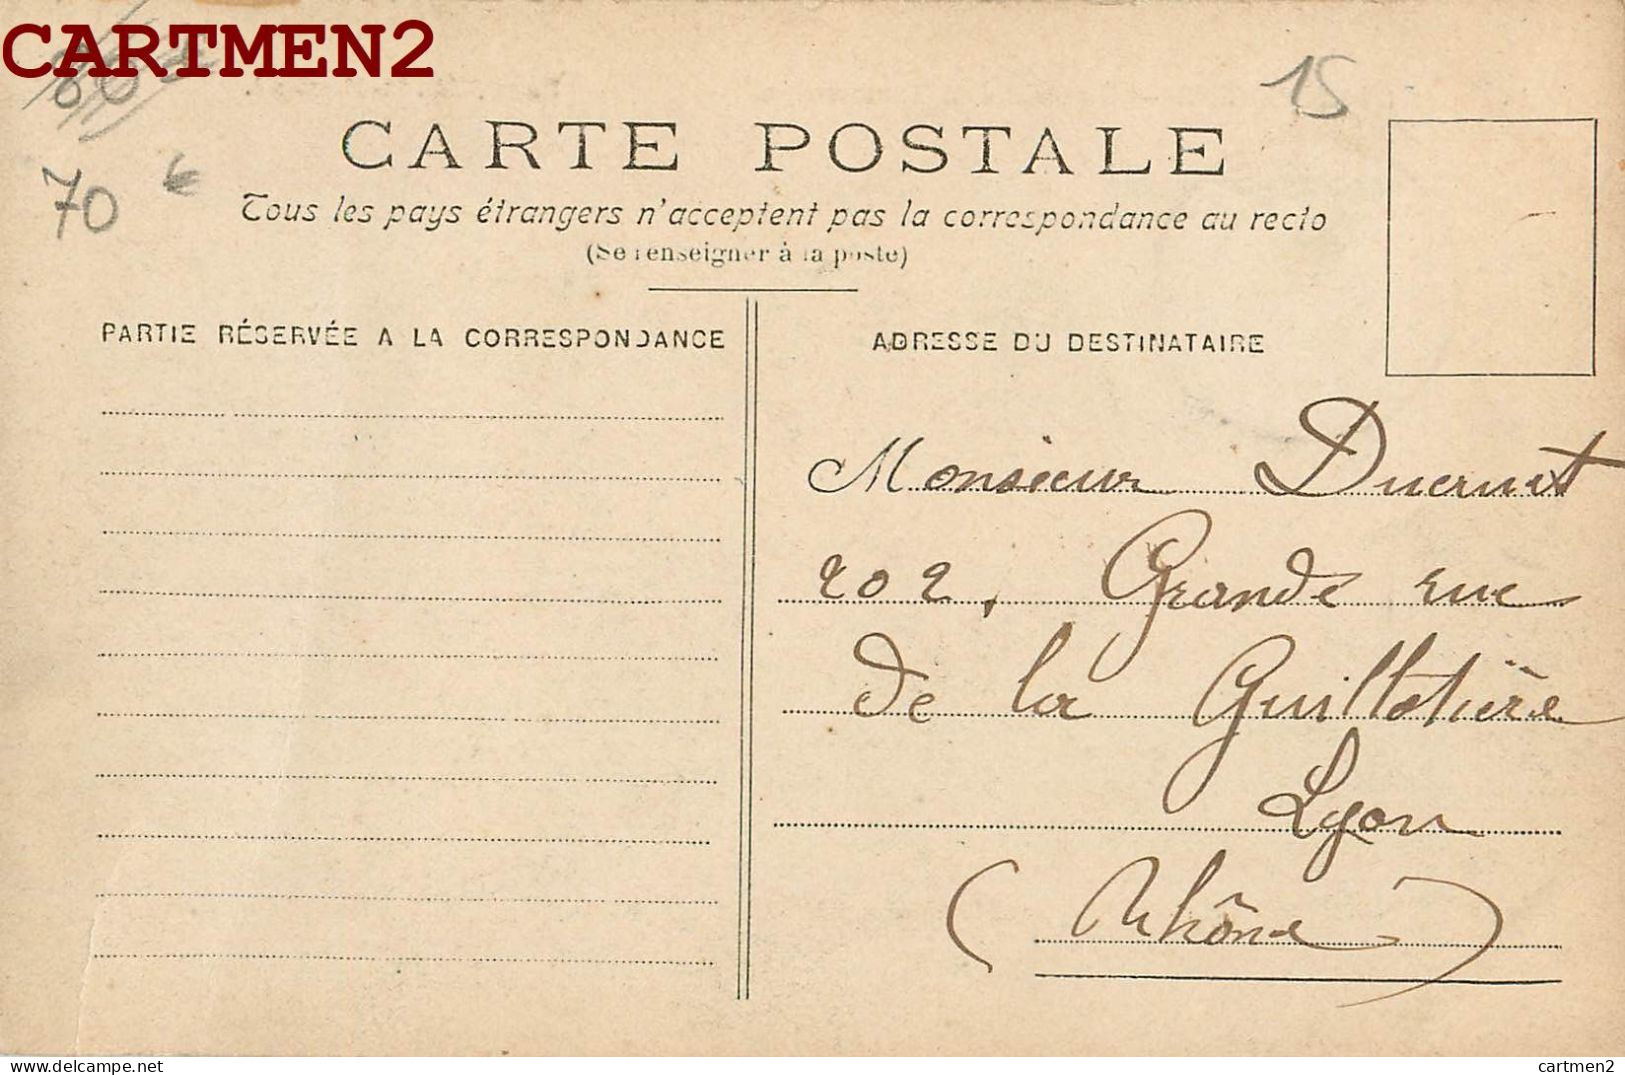 CARTMEN2
15
70 €
CARTE POSTALE
Tous les pays étrangers n'acceptent pas la correspondance au recto
(Se renseigner à la poste)
PARTIE RÉSERVÉE A LA CORRESPONDANCE
ADRESSE DU DESTINATAIRE
Monsieur
202, Grande rue
de la Guillotière
Lyon
(Rhône)
cartmen2